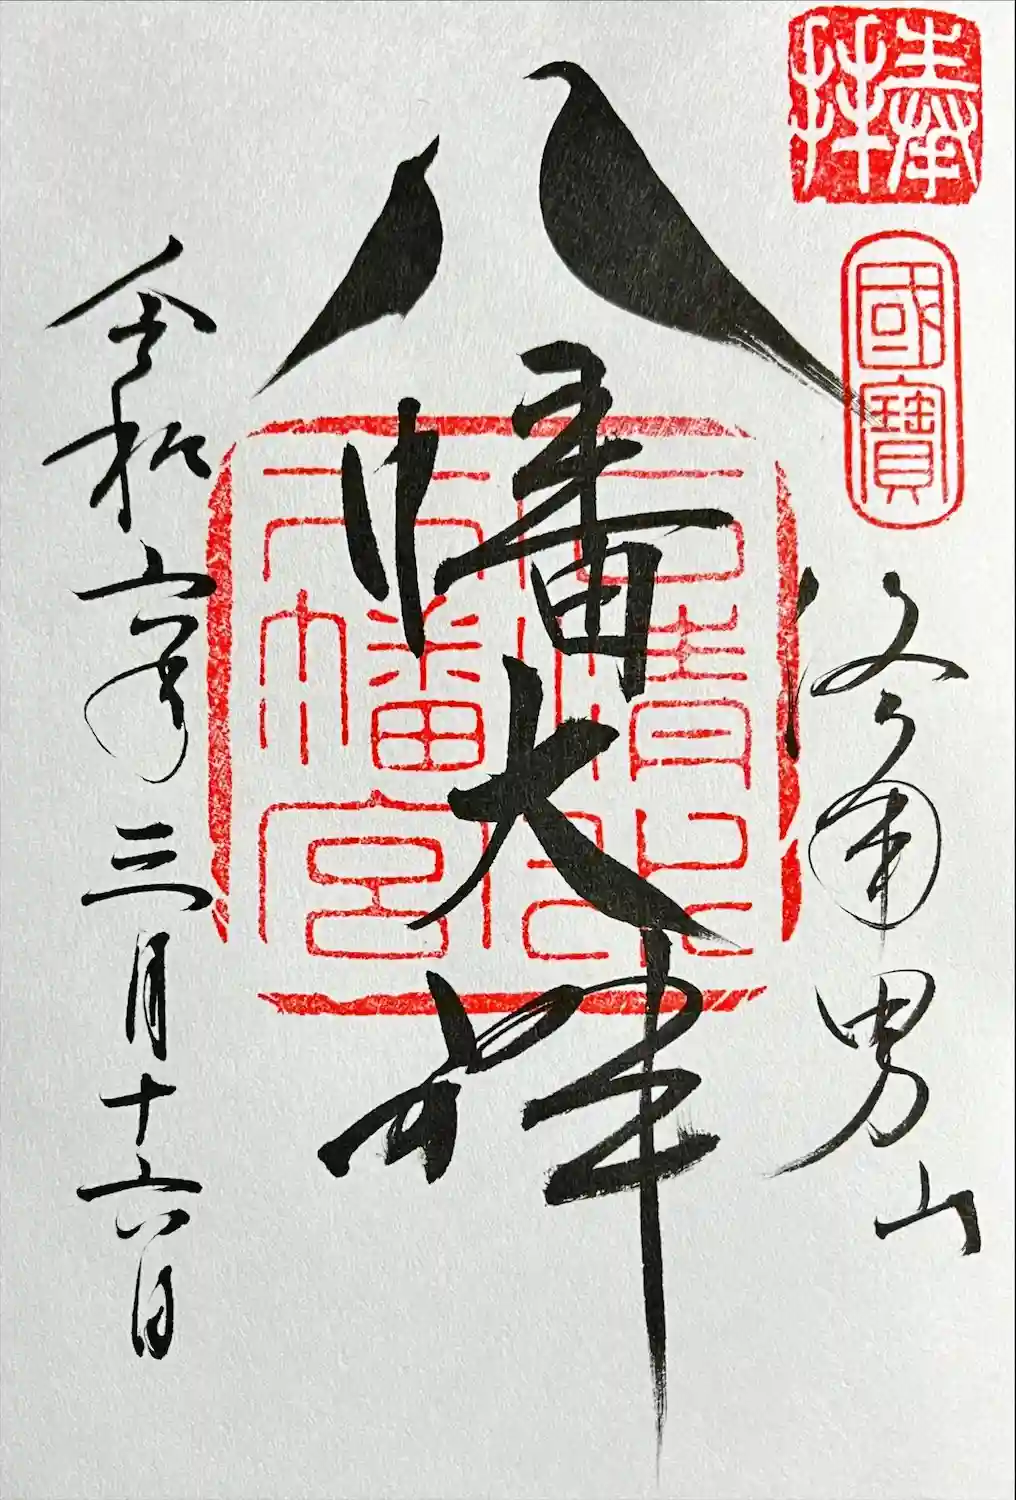 奉拝
國寶
洛南男山
八幡大神
石清水八幡宮
令和六年三月十六日